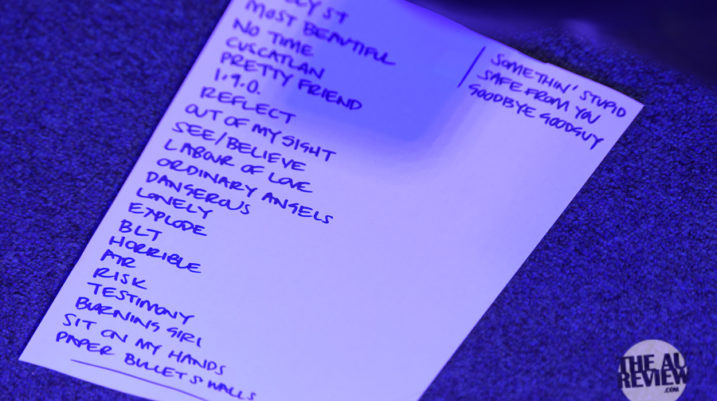 MOST BEAUTIFUL
NO TIME
CUSCATLAN
PRETTY FRIEND
1.9.0.
REFLECT
OUT OF MY SIGHT
SEE/BELIEVE
LABOUR OF LOVE
ORDINARY ANGELS
DANGEROUS
LONELY
EXPLODE
BLT
HORRIBLE
AIR
RISK
TESTIMONY
BURNING GIRL
SIT ON MY HANDS
PAPER BULLETS' WALLS
SOMETHIN' STUPID
SAFE FROM YOU
GOODBYE GOODGUY
THE AU
REVIEW
.COM